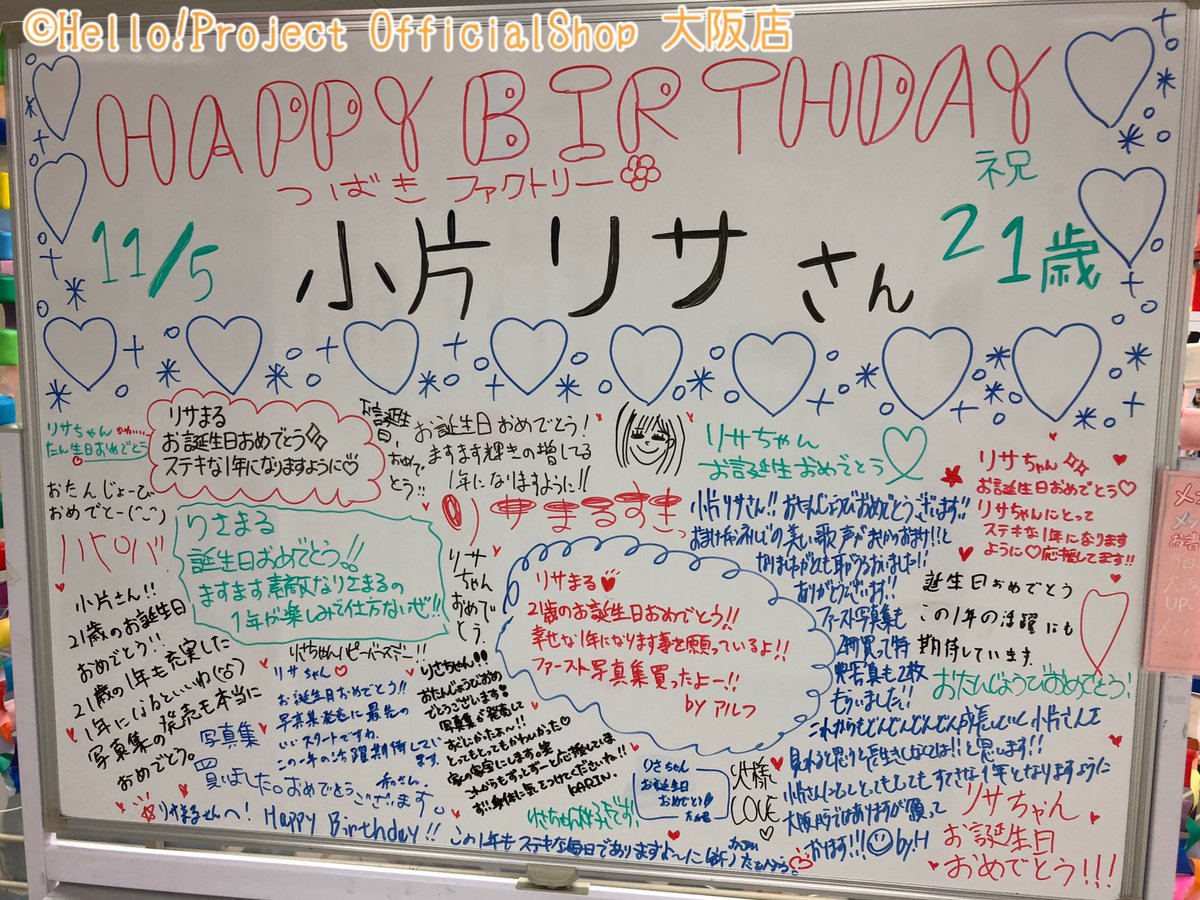 ©Hello!Project OfficialShop 大阪店
HAPPY BIRTHDAY
つばきファクトリー
祝
11/5
小片リサさん
21歳
リサちゃん
たん生日おめでとう
リサまる
お誕生日おめでとう
ステキな1年になりますように♡
お誕生日、おめでとう!!
お誕生日おめでとう!
ますます輝きの増してる
1年になりますように!!
リサちゃん
お誕生おめでとう
リサちゃん
お誕生日おめでとう♡
リサちゃんにとって
ステキな1年になります
ように♡応援してます!!
おたんじょーび
おめでとー
りさまる
誕生日おめでとう!!
ますます素敵なりさまるの
1年が楽しみで仕方ないぜ!!
リサまるすきっ
小片リサさん!!おたんじょうびおめでとうございます!!
の美しい歌声が
ありがとうございます!!
ファースト写真集も
買って特
典写真も2枚
もらいました!!
これからもどんどんどんどん成長していく小片さんを
見れると思うと
と思います!!
小片さんにとってもとってもすてきな1年となりますように
大阪
by.H
リサちゃんおめでとう。
リサまる
21歳のお誕生日おめでとう!!
幸せな1年になります事を願っているよ!!
ファースト写真集買ったよー!!
by アルフ
誕生日おめでとう
この1年の活躍にも
期待しています。
おたんじょうびおめでとう!
小片さん!!
21歳のお誕生日
おめでとう!!
21歳の1年も充実した
1年になるといいね
写真集の発売も本当に
おめでとう。
りさちゃんハピーバースデー!!
リサちゃん♡
お誕生日おめでとう!!
写真集発売に最先の
いいスタートですね。
この一年のご活躍期待してい
ます。
りさちゃん!!
おたんじょうびおめ
でとうございます!
写真集が発売して
とってもとってもかわいかった♡
家の家宝にします。笑
これからもずっとずーと応援していま
す!お身体に気をつけてくださいね!!
KARIN.
写真集
買いました。おめでとうございます。
りさちゃん
お誕生日
おめでとう!
皆様
LOVE
りさちゃん好きです!
りさまるさんへ! Happy Birthday!! この1年もステキな毎日でありますよーに
リサちゃん
お誕生日
おめでとう!!!